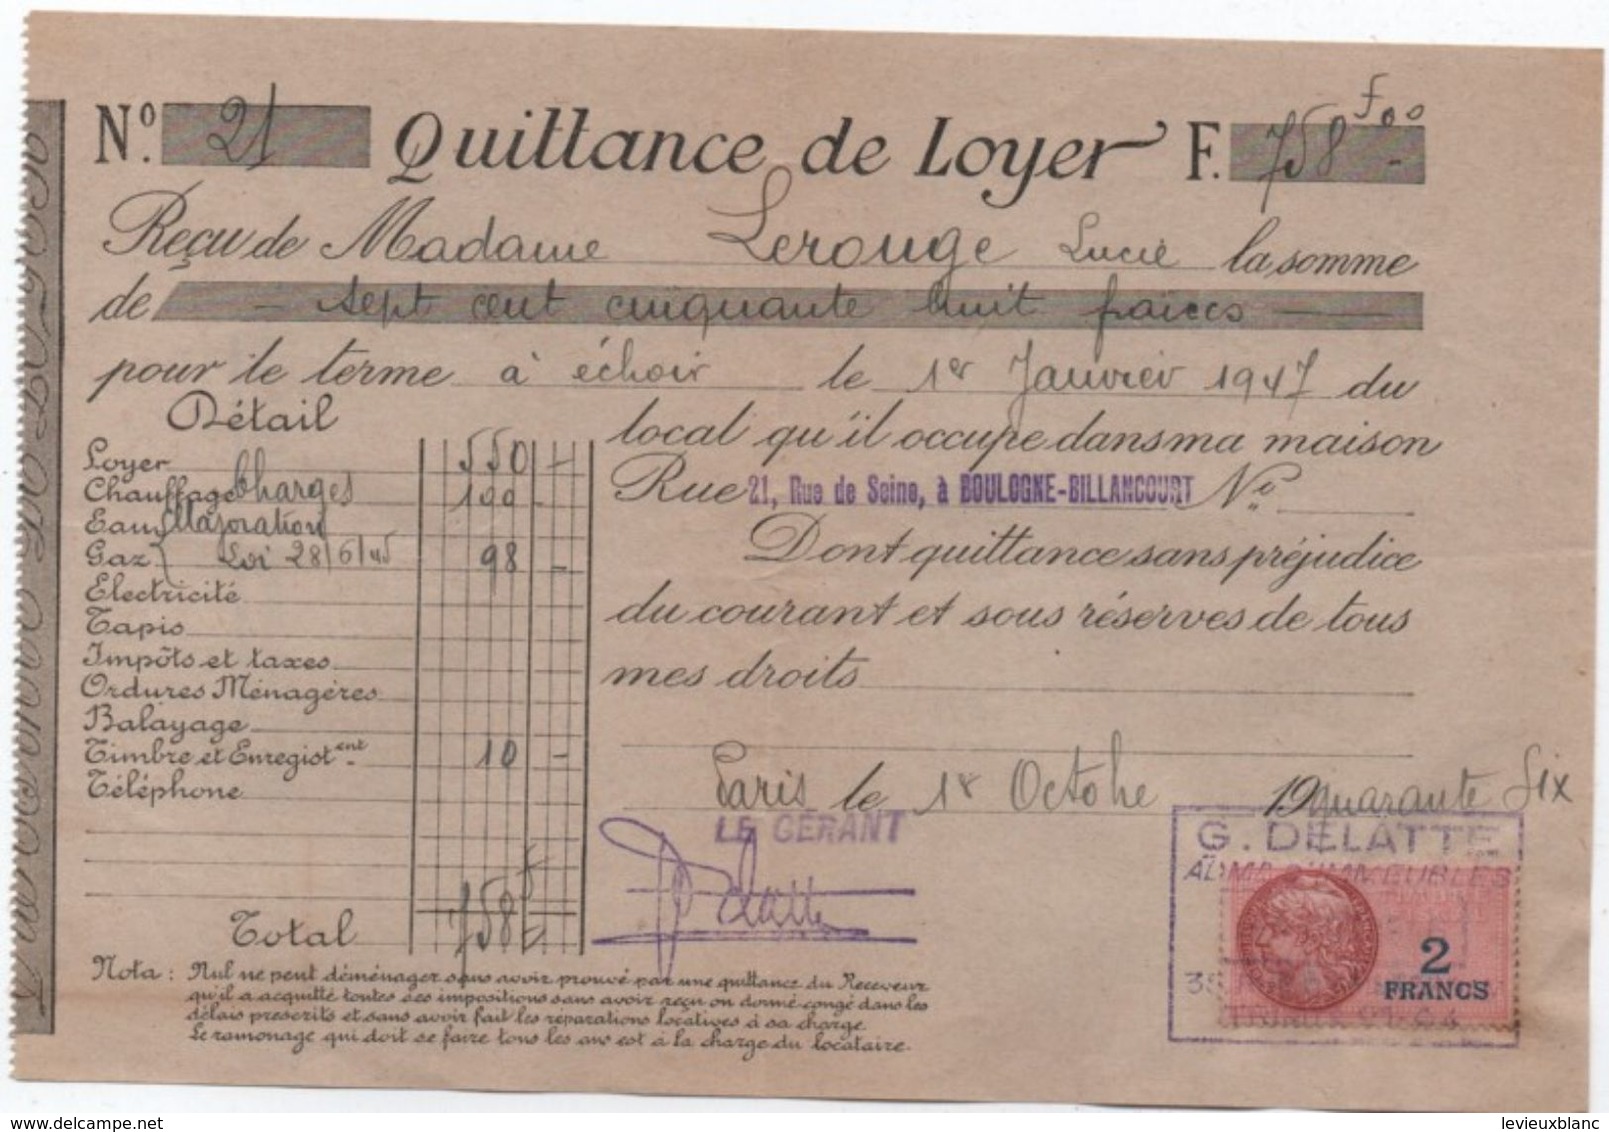 N.º 21 Quittance de Loyer F. 758 Foo
Reçu de Madame Lerouge Lucie la somme
de - sept cent cinquante huit francs
pour le terme à échoir le 1er Janvier 1947 du
local qu'il occupe dans ma maison
Rue 21, Rue de Seine, à BOULOGNE-BILLANCOURT Nº
Dont quittance sans préjudice
du courant et sous réserves de tous
mes droits
Paris le 1er Octobre 19 quarante Six
Détail
Loyer 550 -
Chauffage Charges 100 -
Eau Majoration
Gaz Loi 28/6/45 98 -
Electricité
Tapis
Impôts et taxes
Ordures Ménagères
Balayage
Timbre et Enregistent. 10 -
Téléphone
Total 758
LE GÉRANT
Delatte
G. DELATTE
ADMR D'IMMEUBLES
35
2
FRANCS
Nota : Nul ne peut déménager sans avoir prouvé par une quittance du Receveur
qu'il a acquitté toutes ses impositions sans avoir reçu on donné congé dans les
délais prescrits et sans avoir fait les réparations locatives à sa charge.
Le ramonage qui doit se faire tous les ans est à la charge du locataire.
delcampe.net
levieuxblanc